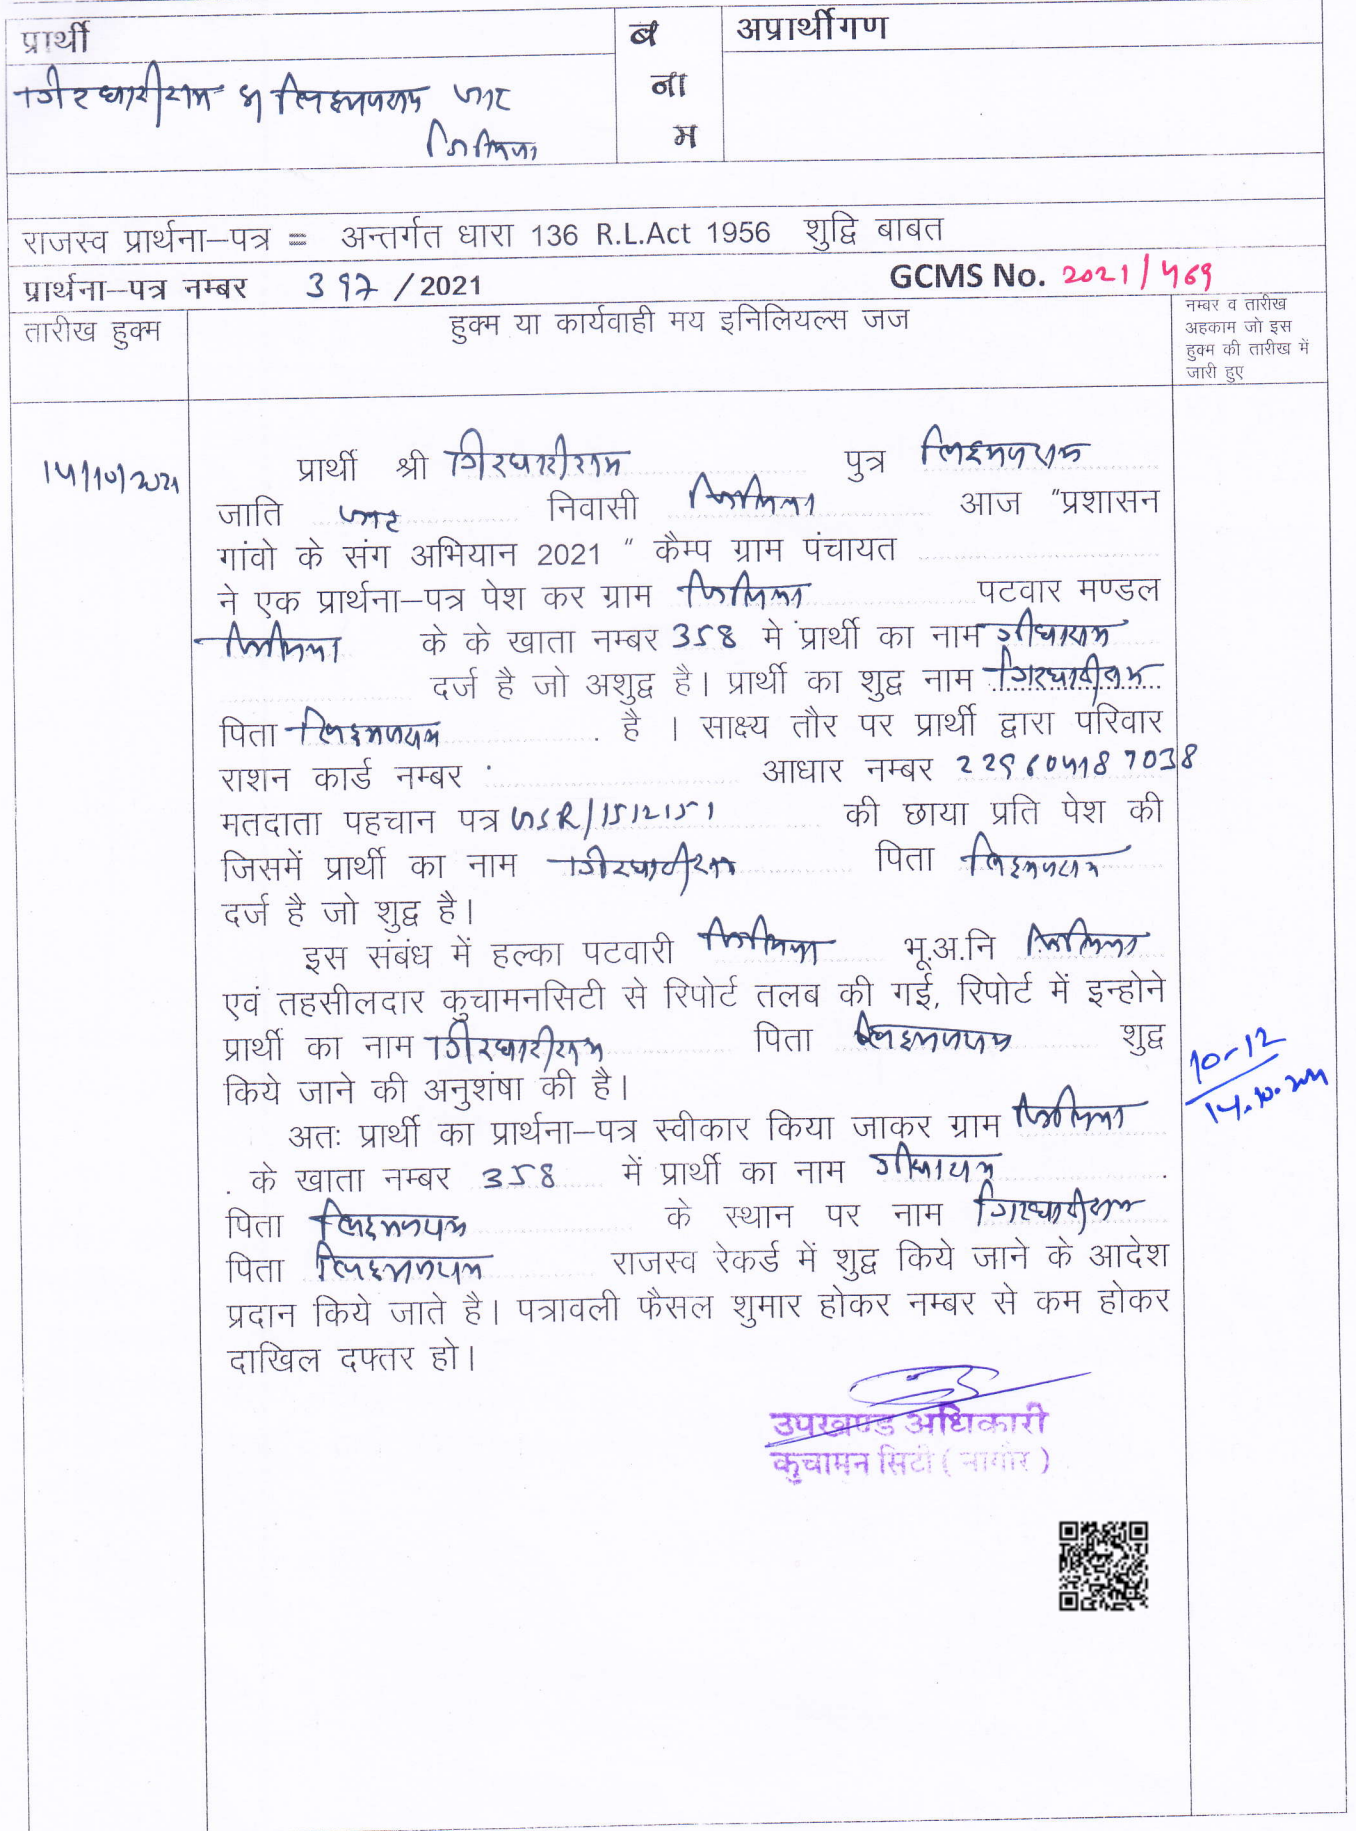 प्रार्थी
ब
ना
म
अप्रार्थीगण
गिरधारीराम S/o लिछमणराम जाट
जिलिया
राजस्व प्रार्थना–पत्र = अन्तर्गत धारा 136 R.L.Act 1956 शुद्वि बाबत
प्रार्थना–पत्र नम्बर 397 / 2021 GCMS No. 2021/469
तारीख हुक्म
हुक्म या कार्यवाही मय इनिलियल्स जज
नम्बर व तारीख
अहकाम जो इस
हुक्म की तारीख में
जारी हुए
14/10/2021
प्रार्थी श्री गिरधारीराम पुत्र लिछमणराम
जाति जाट निवासी जिलिया आज "प्रशासन
गांवो के संग अभियान 2021 " कैम्प ग्राम पंचायत
ने एक प्रार्थना–पत्र पेश कर ग्राम जिलिया पटवार मण्डल
जिलिया के के खाता नम्बर 358 मे प्रार्थी का नाम गीधाराम
दर्ज है जो अशुद्व है। प्रार्थी का शुद्व नाम गिरधारीराम
पिता लिछमणराम . है । साक्ष्य तौर पर प्रार्थी द्वारा परिवार
राशन कार्ड नम्बर आधार नम्बर 225604187038
मतदाता पहचान पत्र /1512151 की छाया प्रति पेश की
जिसमें प्रार्थी का नाम गिरधारीराम पिता लिछमणराम
दर्ज है जो शुद्व है।
इस संबंध में हल्का पटवारी जिलिया भू.अ.नि जिलिया
एवं तहसीलदार कुचामनसिटी से रिपोर्ट तलब की गई, रिपोर्ट में इन्होने
प्रार्थी का नाम गिरधारीराम पिता लिछमणराम शुद्व
किये जाने की अनुशंषा की है।
10-12
14.10.2021
अतः प्रार्थी का प्रार्थना–पत्र स्वीकार किया जाकर ग्राम जिलिया
. के खाता नम्बर 358 में प्रार्थी का नाम गीधाराम
पिता लिछमणराम के स्थान पर नाम गिरधारीराम
पिता लिछमणराम राजस्व रेकर्ड में शुद्व किये जाने के आदेश
प्रदान किये जाते है। पत्रावली फैसल शुमार होकर नम्बर से कम होकर
दाखिल दफ्तर हो।
उपखण्ड अधिकारी
कुचामन सिटी ( नागौर )